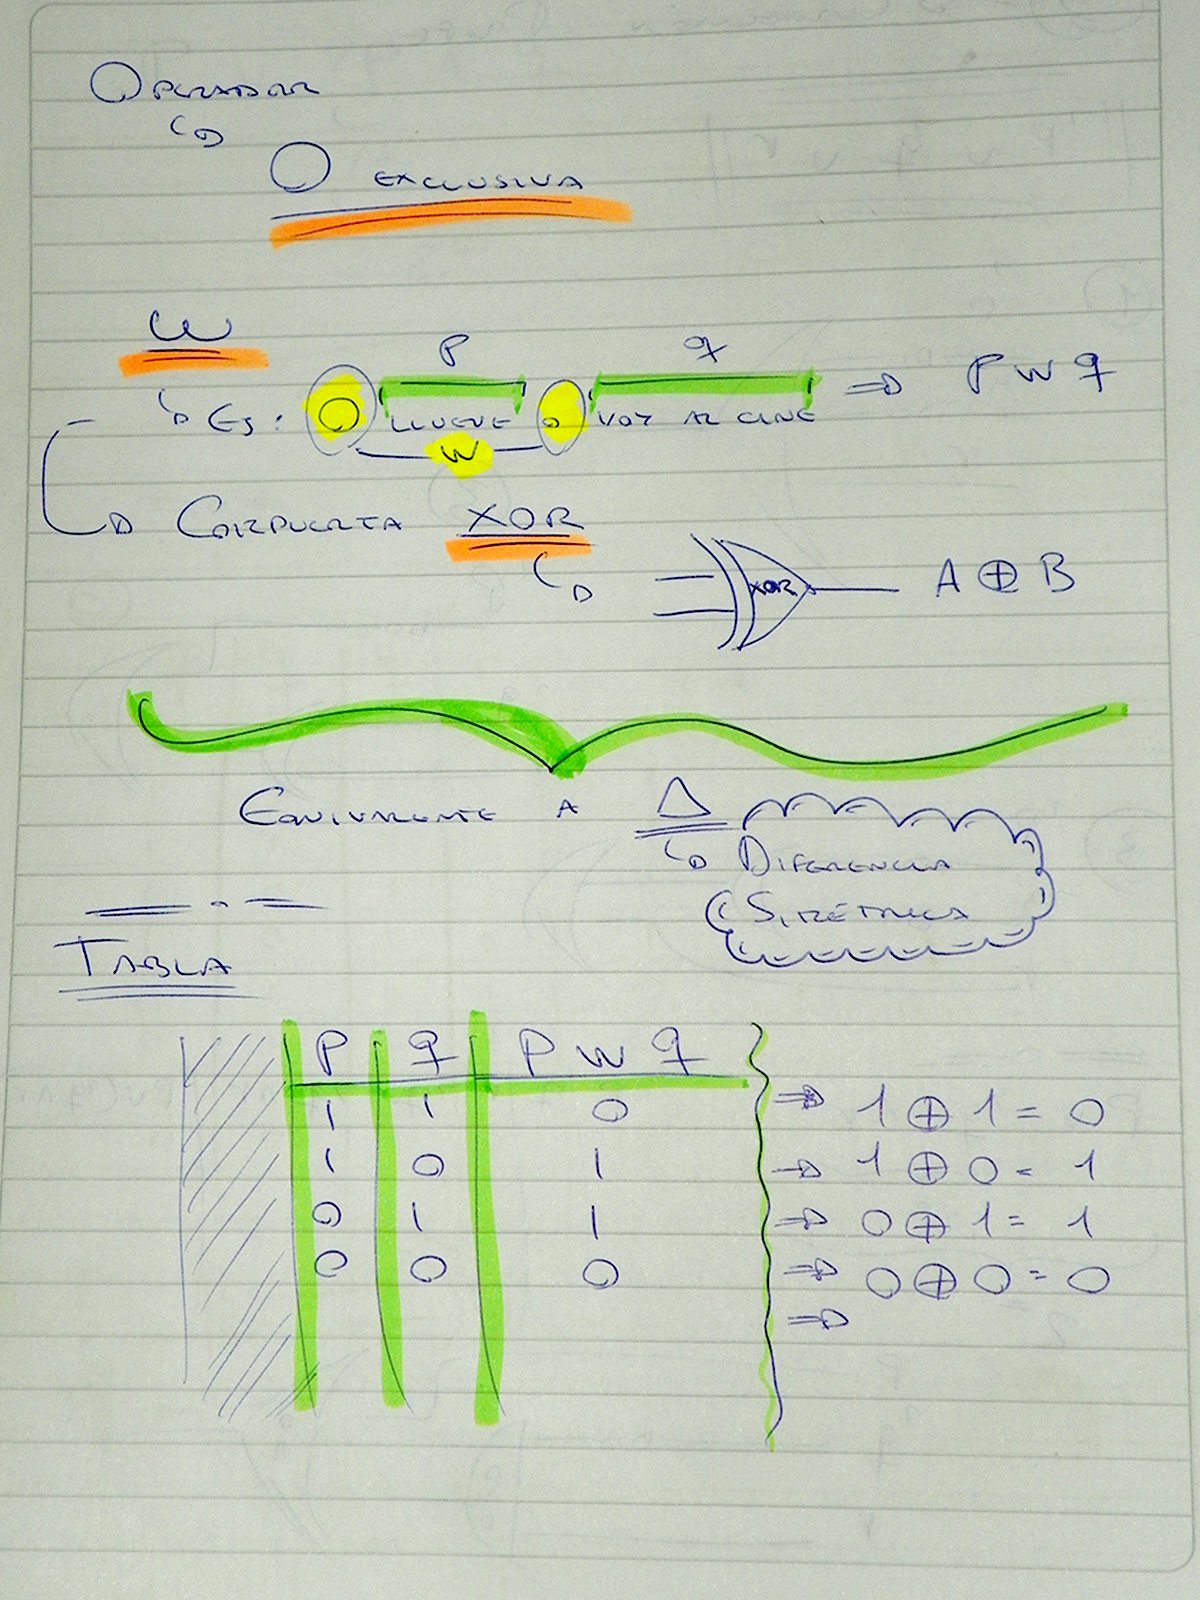 OPERADOR
O EXCLUSIVA
W
p q
Ej: O LLUEVE O VOY AL CINE ⇒ p w q
W
COMPUERTA XOR
XOR A ⊕ B
EQUIVALENTE A Δ
DIFERENCIA
SIMÉTRICA
TABLA
p q p w q
1 1 0 ⇒ 1 ⊕ 1 = 0
1 0 1 ⇒ 1 ⊕ 0 = 1
0 1 1 ⇒ 0 ⊕ 1 = 1
0 0 0 ⇒ 0 ⊕ 0 = 0
⇒